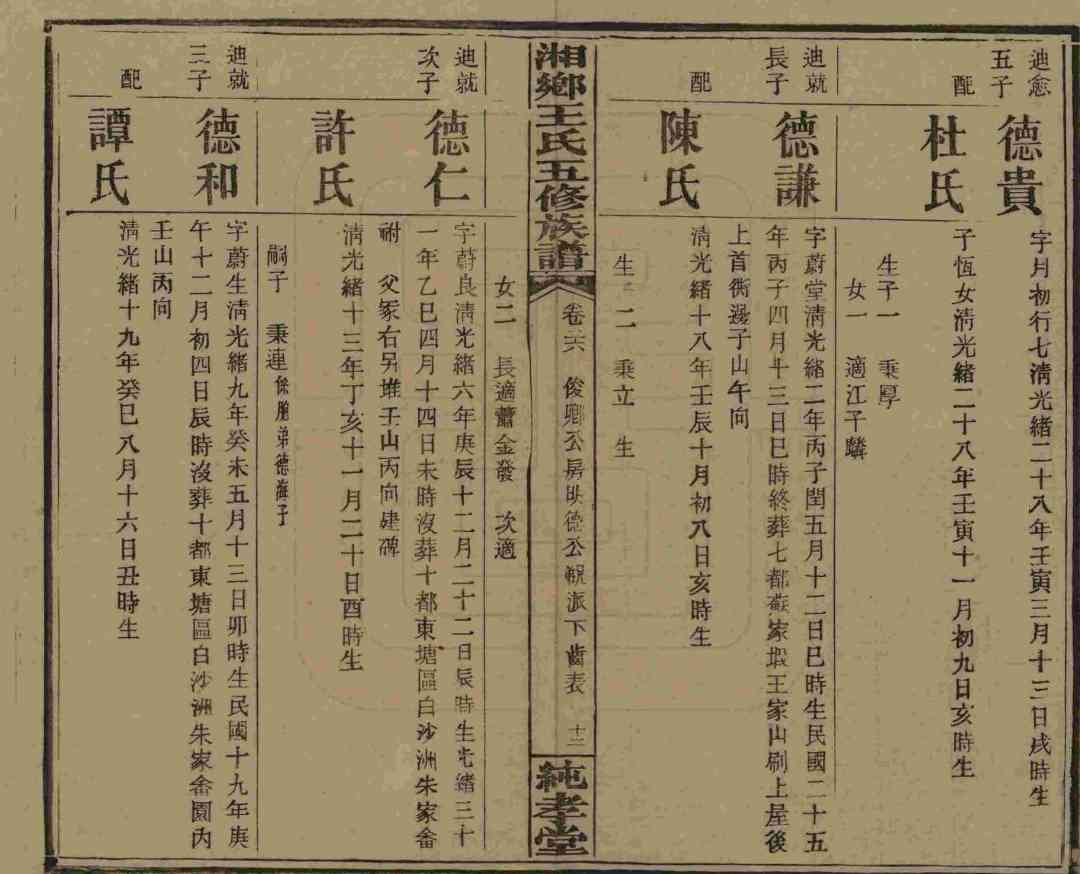 迪愈
五子
德貴
字月初行七清光緒二十八年壬寅三月十三日戌時生
配
杜氏
子恆女清光緒二十八年壬寅十一月初九日亥時生
生子一　秉厚
女一　適江千麟
迪就
長子
德謙
字蔚堂清光緒二年丙子閏五月十二日巳時生民國二十五
年丙子四月廿三日巳時終葬七都蔡家塅王家山刷上屋後
上首衝邊子山午向
配
陳氏
清光緒十八年壬辰十月初八日亥時生
生　二　秉立　生
湘鄉王氏五修族譜
卷六　俊卿公房映德公覞派下齒表　十二
純孝堂
女二　長適蕭金發　次適
迪就
次子
德仁
字蔚良清光緒六年庚辰十二月二十二日辰時生光緒三十
一年乙巳四月十四日未時沒葬十都東塘區白沙洲朱家畬
祔　父冢右另堆壬山丙向建碑
許氏
清光緒十三年丁亥十一月二十日酉時生
嗣子　秉連係胞弟德海子
迪就
三子
德和
字蔚生清光緒九年癸未五月十三日卯時生民國十九年庚
午十二月初四日辰時沒葬十都東塘區白沙洲朱家畬園內
壬山丙向
配
譚氏
清光緒十九年癸巳八月十六日丑時生